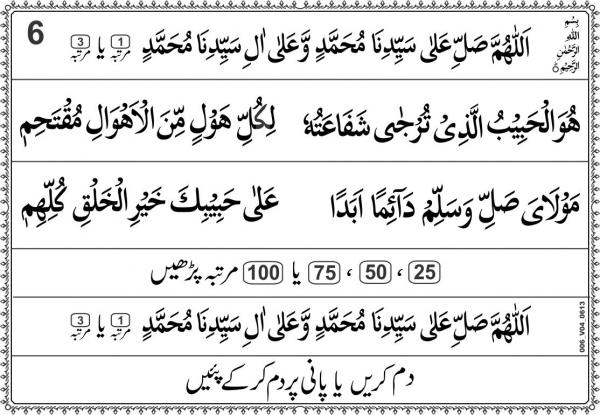 6
بِسْمِ اللّٰهِ الرَّحْمٰنِ الرَّحِيْمِ
اَللّٰهُمَّ صَلِّ عَلٰى سَيِّدِنَا مُحَمَّدٍ وَّعَلٰى اٰلِ سَيِّدِنَا مُحَمَّدٍ 1 مرتبہ یا 3 مرتبہ
هُوَ الْحَبِيْبُ الَّذِيْ تُرْجٰى شَفَاعَتُهٗ لِكُلِّ هَوْلٍ مِّنَ الْاَهْوَالِ مُقْتَحِمٖ
مَوْلَايَ صَلِّ وَسَلِّمْ دَآئِمًا اَبَدًا عَلٰى حَبِيْبِكَ خَيْرِ الْخَلْقِ كُلِّهِمٖ
25 ، 50 ، 75 یا 100 مرتبہ پڑھیں
اَللّٰهُمَّ صَلِّ عَلٰى سَيِّدِنَا مُحَمَّدٍ وَّعَلٰى اٰلِ سَيِّدِنَا مُحَمَّدٍ 1 مرتبہ یا 3 مرتبہ
006_V04_0613
دم کریں یا پانی پر دم کر کے پئیں